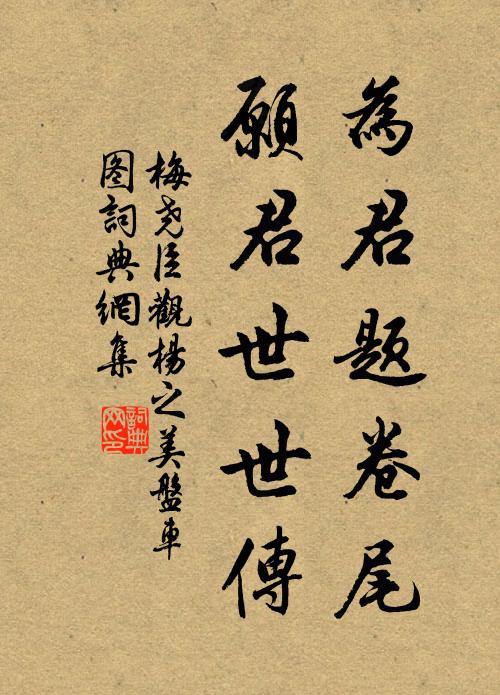 為君題卷尾
願君世世傳
梅尧臣觀楊之美盤車
图詞典網集
詞典网印